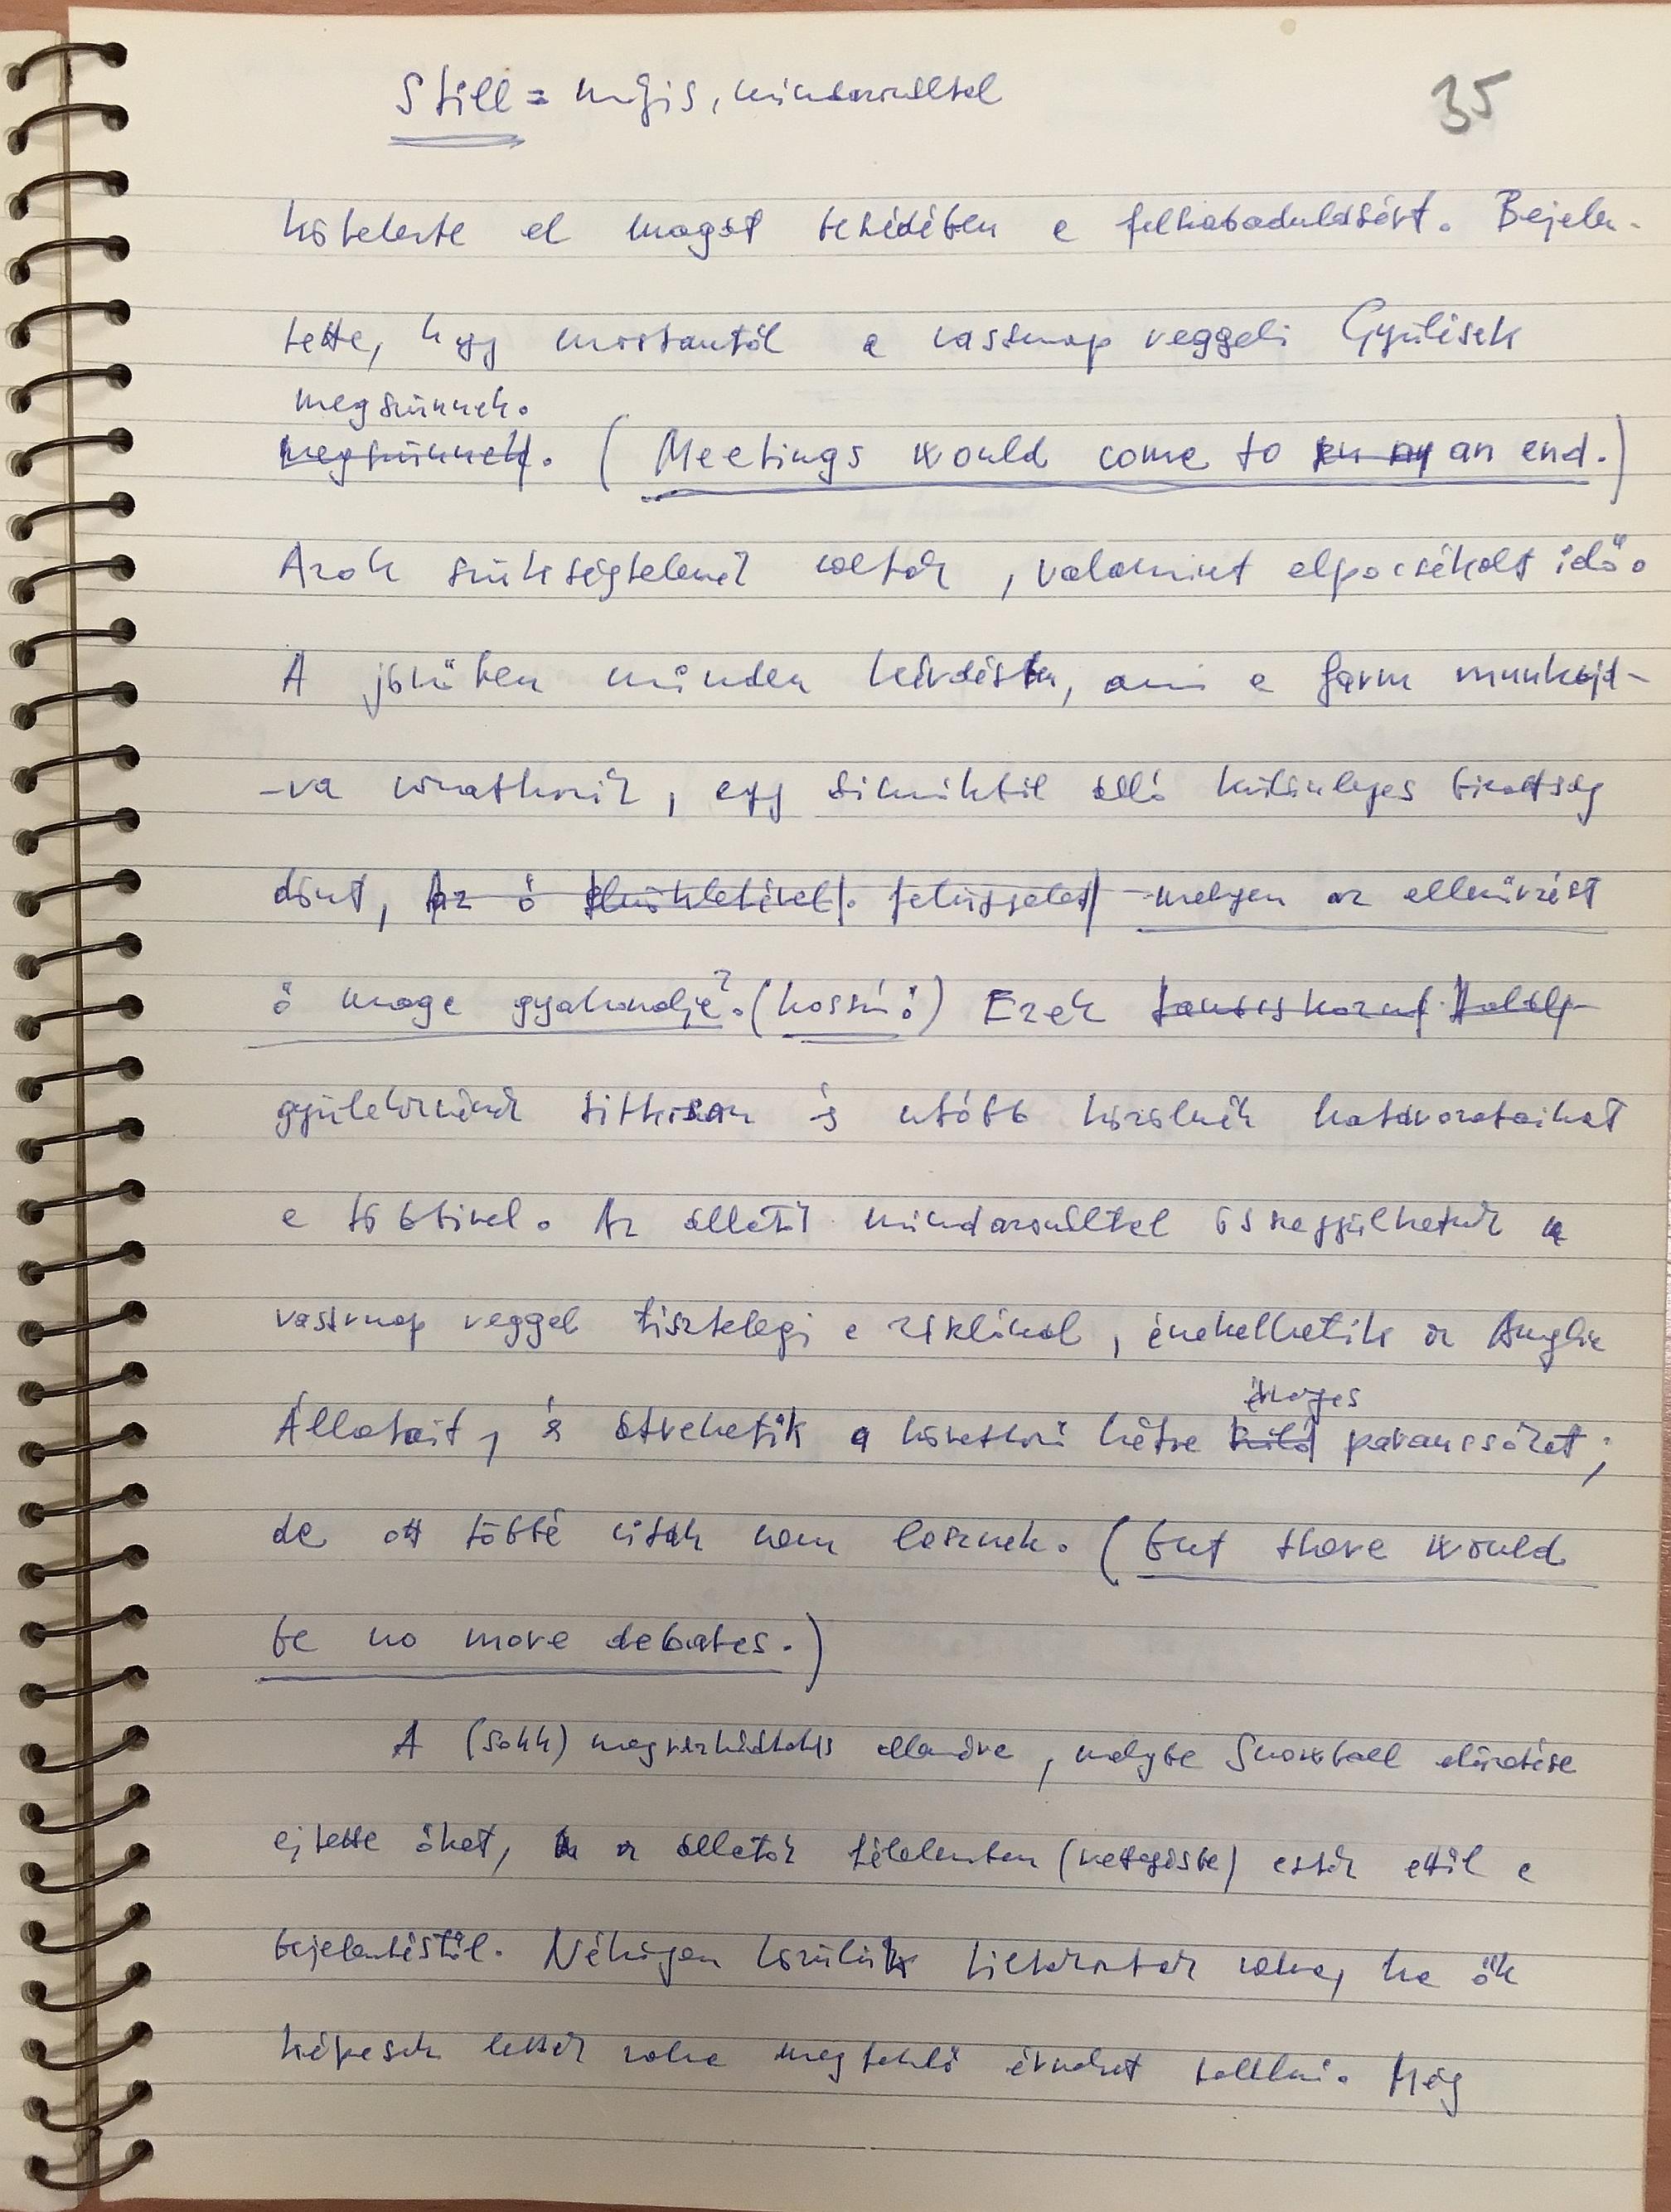 Still = mégis, mindazonáltal
35
kötelezte el magát beszédében a felszabadulásért. Bejelen-
tette, hogy mostantól a vasárnap reggeli Gyűlések
megszűnnek.
megszűnnek. (Meetings would come to an end.)
Azok szükségtelenek voltak, valamint elpocsékolt idő.
A jövőben minden kérdésben, ami a farm munkájá-
-ra vonatkozik, egy disznókból álló különleges bizottság
dönt, Az ő elnökletével. felügyelet melyen az ellenőrzést
ő maga gyakorolja?. (hosszú ő) Ezek
gyülekeznének titkosan és utóbb közölnék határozataikat
a többivel. Az állatok mindazonáltal összegyűlhetnek a
vasárnap reggel tisztelegni a zászlónál, énekelhetik az Anglia
Állatait, és átvehetik a következő hétre
énoges
parancsokat;
de ott többé viták nem lesznek. (but there would
be no more debates.)
A (sokk) megrázkódtatás ellenére, melybe Snowball elűzetése
ejtette őket, az állatok félelemben (rettegésbe) estek ettől a
bejelentéstől. Néhányan közülük tiltakoztak volna, ha ők
képesek lettek volna megfelelő érveket találni. Még